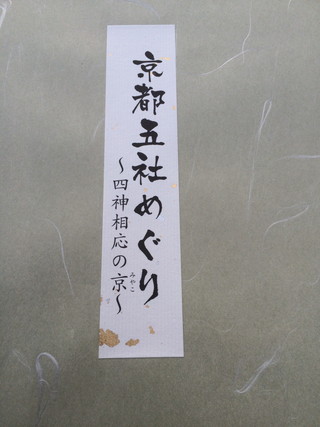 京都五社めぐり
～四神相応の京～
みやこ